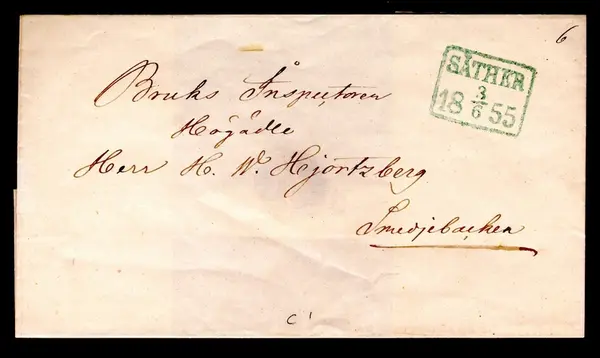 6
SÄTHER
18 3/6 55
Bruks Inspectoren
Högädle
Herr H. W. Hjortzberg
Smedjebacken